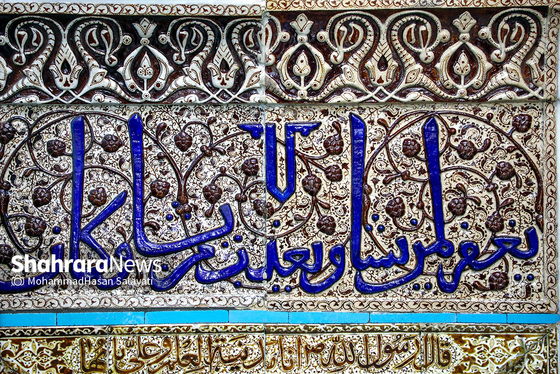 يغفر لمن يشا و يعذب من يشا و كا
ShahraraNews
© MohammadHasan Salavati
قال رسول الله انا مدينة العلم و علي بابها